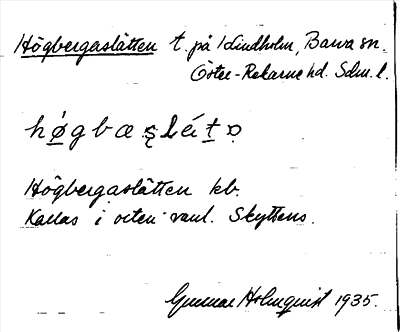 Högbergaslätten t. på Lindholm, Barva sn.
Öster-Rekarne hd. Sdm. l.
Högbergaslätten kb.
Kallas i orten vanl. Skyttens.
Gunnar Holmquist 1935.